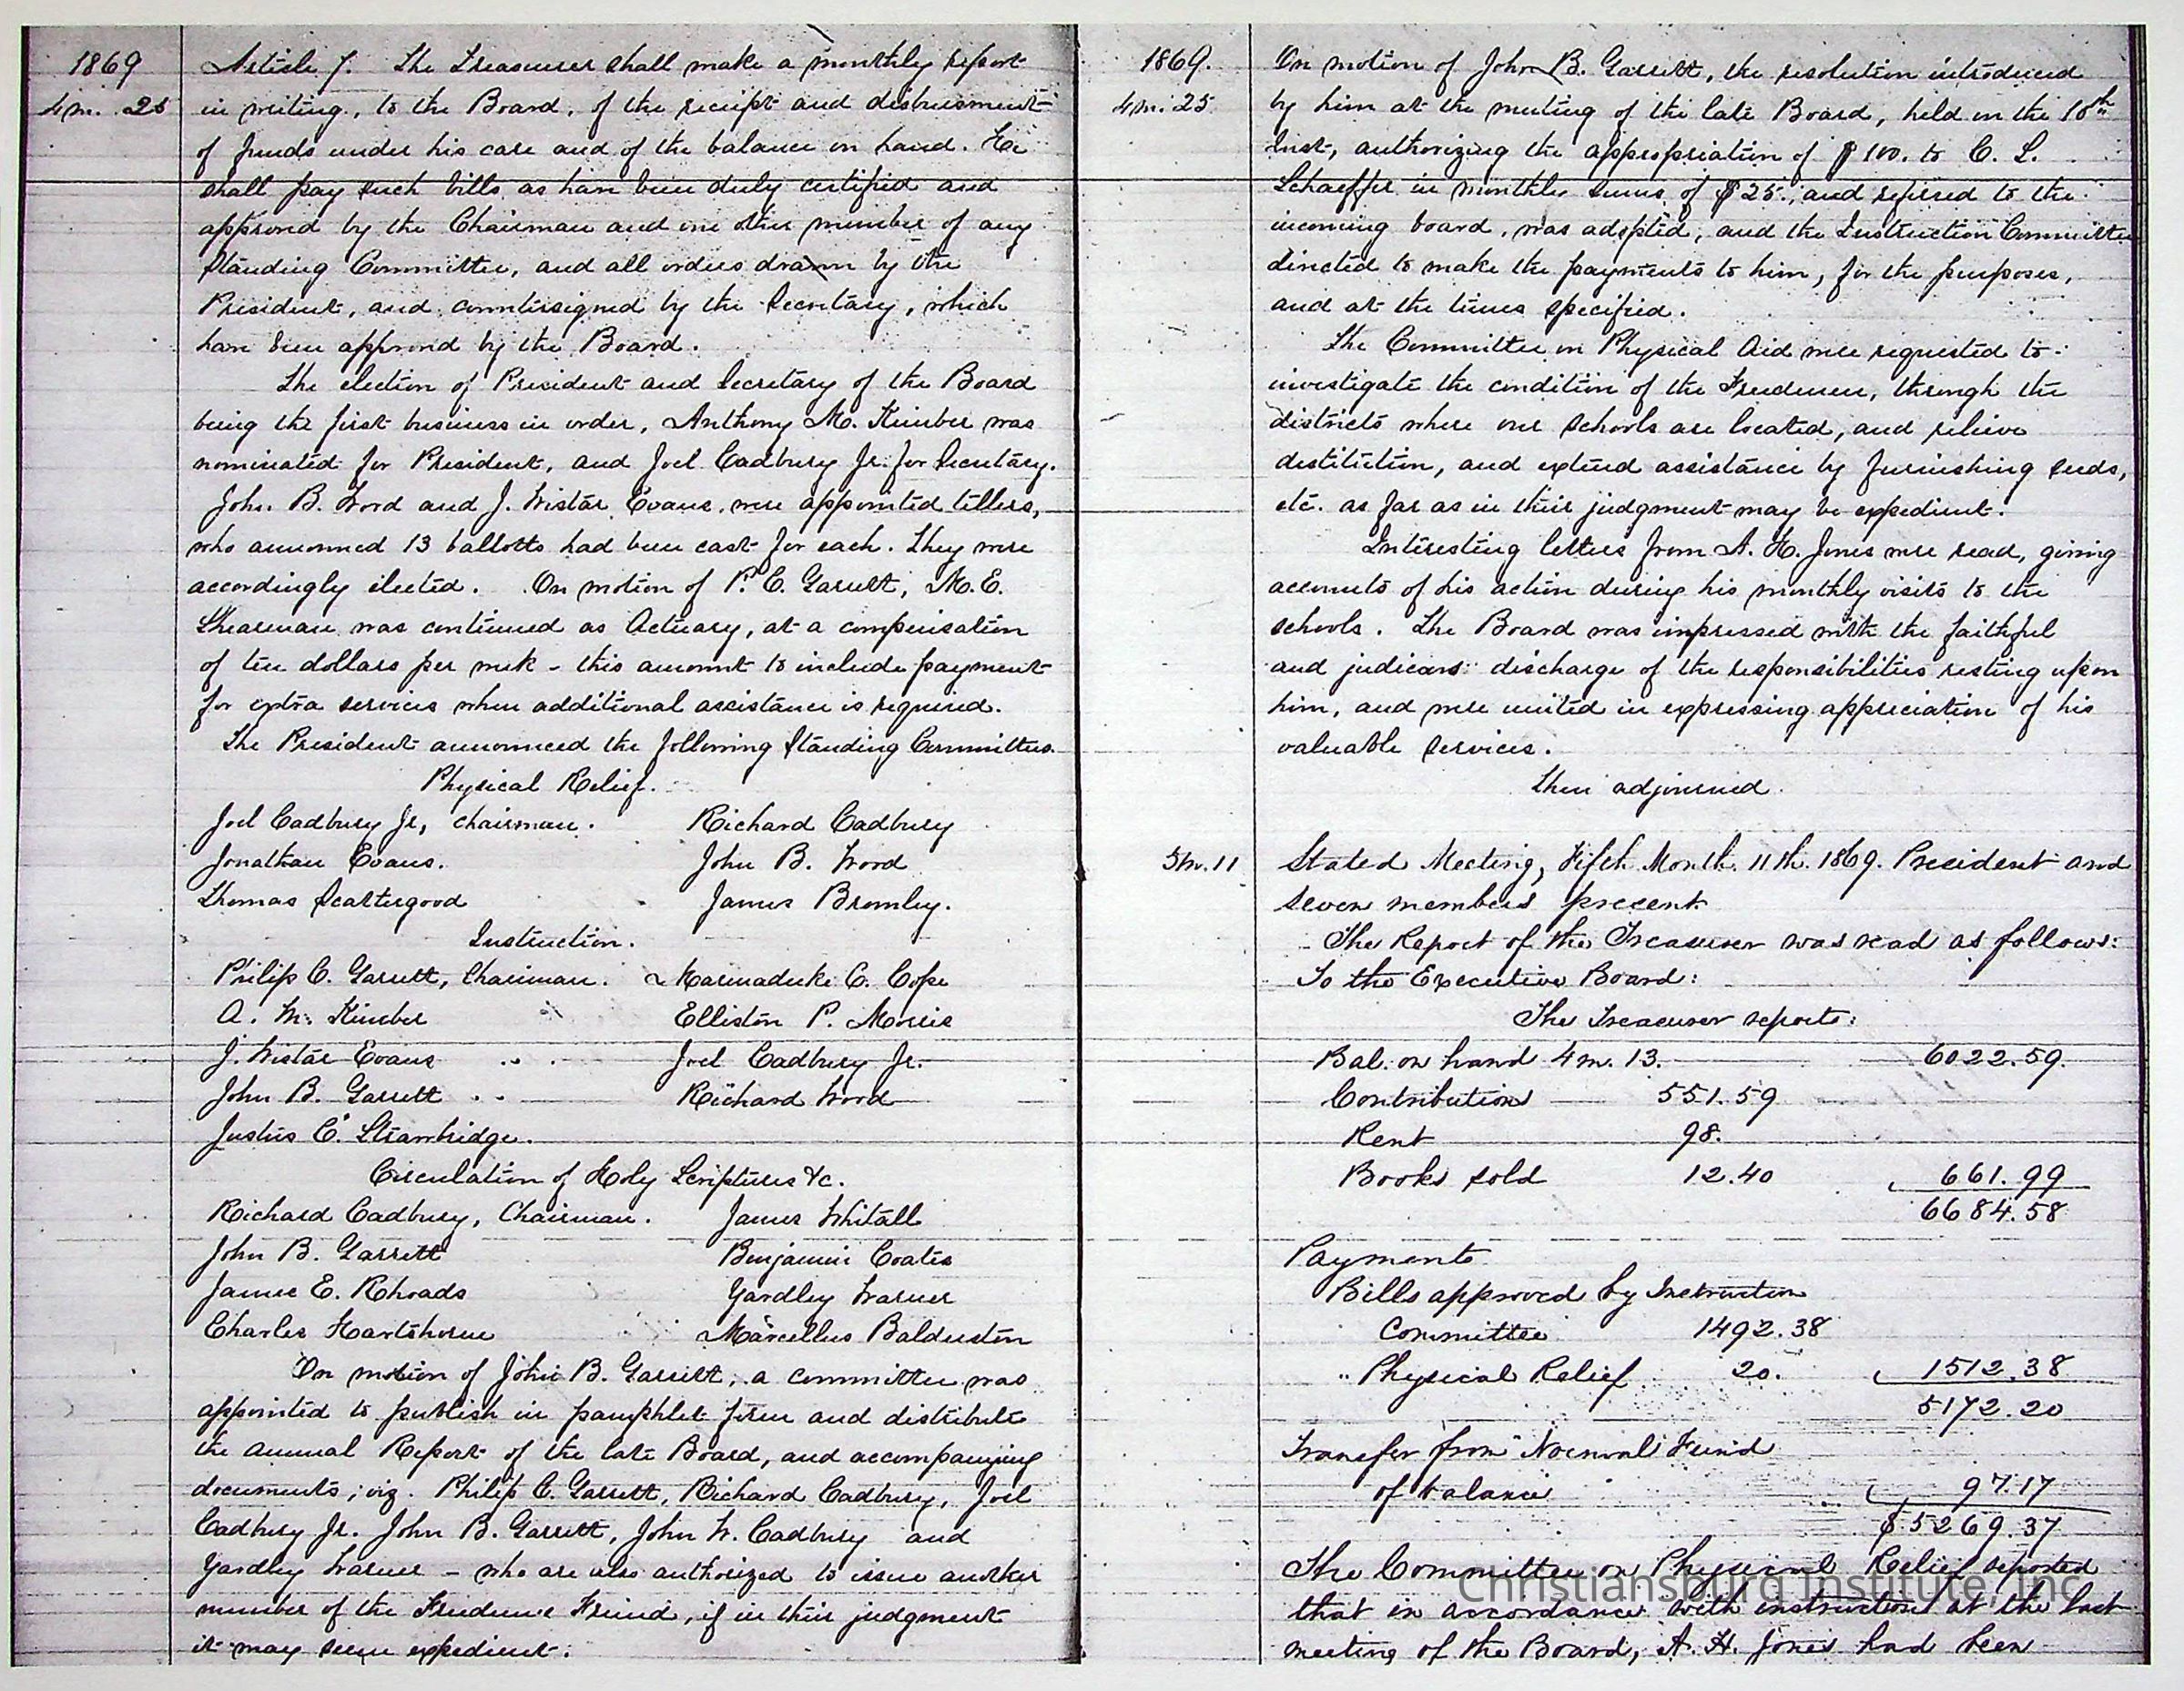 1869
4m. 25
Article 7. The Treasurer shall make a monthly report
in writing, to the Board, of the receipt and disbursment
of funds under his care and of the balance on hand. He
shall pay such bills as have been duly certified and
approved by the Chairman and one other member of any
Standing Committee, and all orders drawn by the
President, and countersigned by the Secretary, which
have been approved by the Board.
The election of President and Secretary of the Board
being the first business in order, Anthony M. Kimber was
nominated for President, and Joel Cadbury Jr. for Secretary.
John B. Wood and J. Wistar Evans, were appointed tellers,
who announced 13 ballotts had been cast for each. They were
accordingly elected. On motion of P. C. Garrett, M. E.
Shearman was continued as Actuary, at a compensation
of ten dollars per week - this amount to include payment
for extra services when additional assistance is required.
The President announced the following Standing Committees.
Physical Relief.
Joel Cadbury Jr, Chairman. Richard Cadbury
Jonathan Evans. John B. Wood
Thomas Scattergood James Bromley.
Instruction.
Philip C. Garrett, Chairman. Marmaduke C. Cope
A. M. Kimber Elliston P. Morris
J. Wistar Evans Joel Cadbury Jr.
John B. Garrett Richard Wood
Justus C. Strawbridge.
Circulation of Holy Scriptures &c.
Richard Cadbury, Chairman. James Whitall
John B. Garrett Benjamin Coates
James E. Rhoads Yardley Warner
Charles Hartshorne Marcellus Balderston
On motion of John B. Garrett, a committee was
appointed to publish in pamphlet form and distribute
the annual Report of the late Board, and accompanying
documents; viz. Philip C. Garrett, Richard Cadbury, Joel
Cadbury Jr. John B. Garrett, John W. Cadbury and
Yardley Warner - who are also authorized to issue another
number of the Freedmen's Friend, if in their judgment
it may seem expedient.
1869.
4m. 25
On motion of John B. Garrett, the resolution introduced
by him at the meeting of the late Board, held on the 10th
Inst, authorizing the appropriation of $100. to C. S.
Schaeffer in monthly sums of $25., and referred to the
incoming board, was adopted, and the Instruction Committee
directed to make the payments to him, for the purposes,
and at the times specified.
The Committee on Physical Aid were requested to
investigate the condition of the Freedmen, through the
districts where our schools are located, and relieve
destitution, and extend assistance by furnishing seeds,
etc. as far as in their judgment may be expedient.
Interesting letters from A. H. Jones were read, giving
accounts of his action during his monthly visits to the
schools. The Board was impressed with the faithful
and judicous discharge of the responsibilities resting upon
him, and were united in expressing appreciation of his
valuable services.
Then adjourned.
5m. 11
Stated Meeting, Fifth Month. 11th. 1869. President and
seven members present.
The Report of the Treasurer was read as follows:
To the Executive Board:
The Treasurer reports:
Bal. on hand 4m. 13. 6022.59.
Contributions 551.59
Rent 98.
Books sold 12.40 661.99
6684.58
Payments
Bills approved by Instruction
Committee 1492.38
" Physical Relief 20. 1512.38
5172.20
Transfer from Normal Fund
of balance 97.17
$5269.37
The Committee on Physical Relief reported
that in accordance with instructions at the last
meeting of the Board, A. H. Jones had been
Christiansburg Institute, Inc